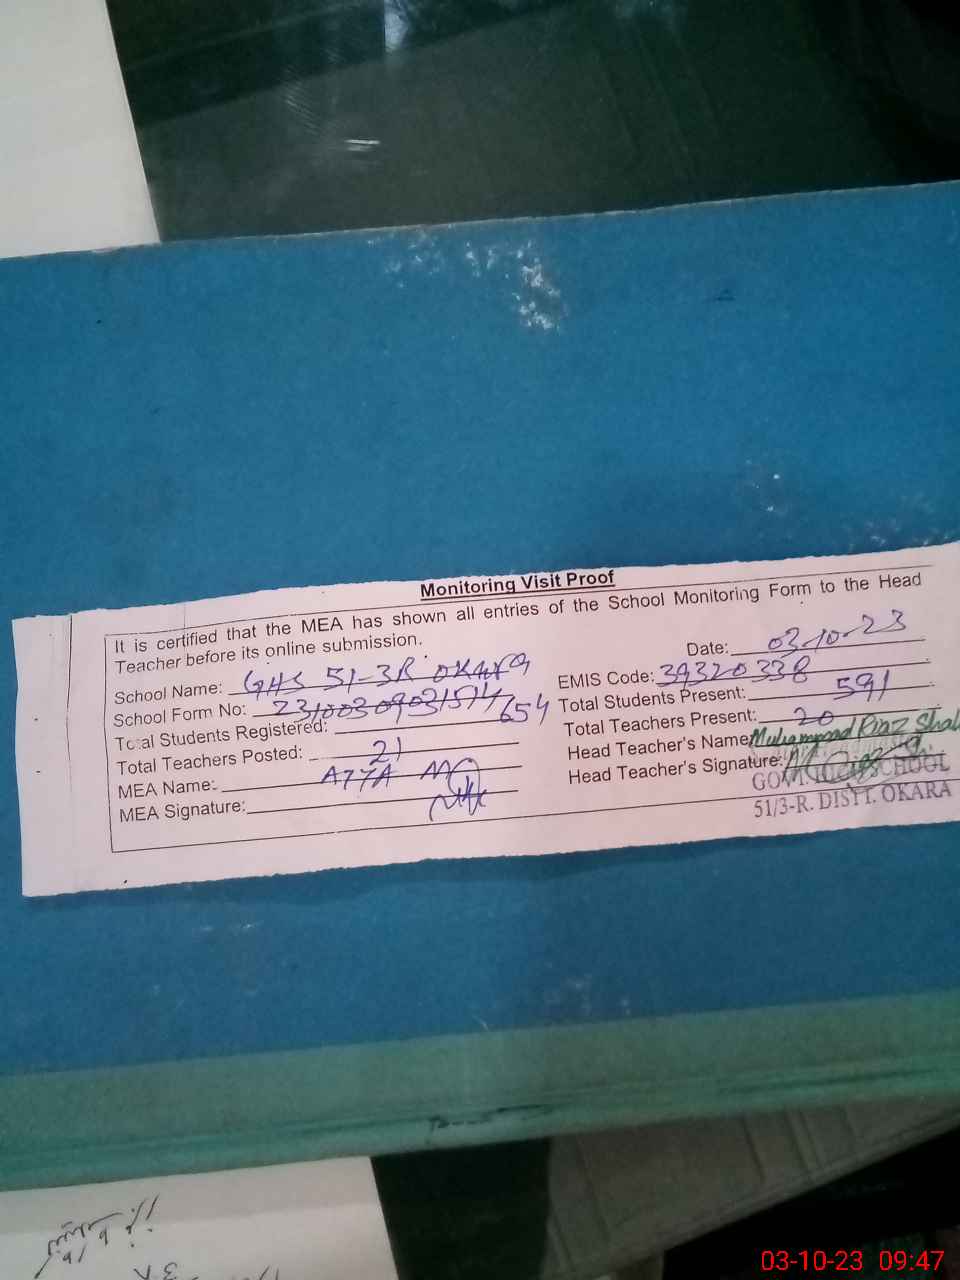 Monitoring Visit Proof
It is certified that the MEA has shown all entries of the School Monitoring Form to the Head
Teacher before its online submission.
Date: 03-10-23
School Name: GHS 51-3R OKARA
EMIS Code: 39320338
School Form No: 2310030903151
Total Students Present: 591
Total Students Registered: 654
Total Teachers Present: 20
Total Teachers Posted: 21
Head Teacher's Name: Muhammad Riaz Shah
MEA Name: ATTA
Head Teacher's Signature:
MEA Signature:
GOVT. HIGH SCHOOL
51/3-R. DISTT. OKARA
03-10-23 09:47